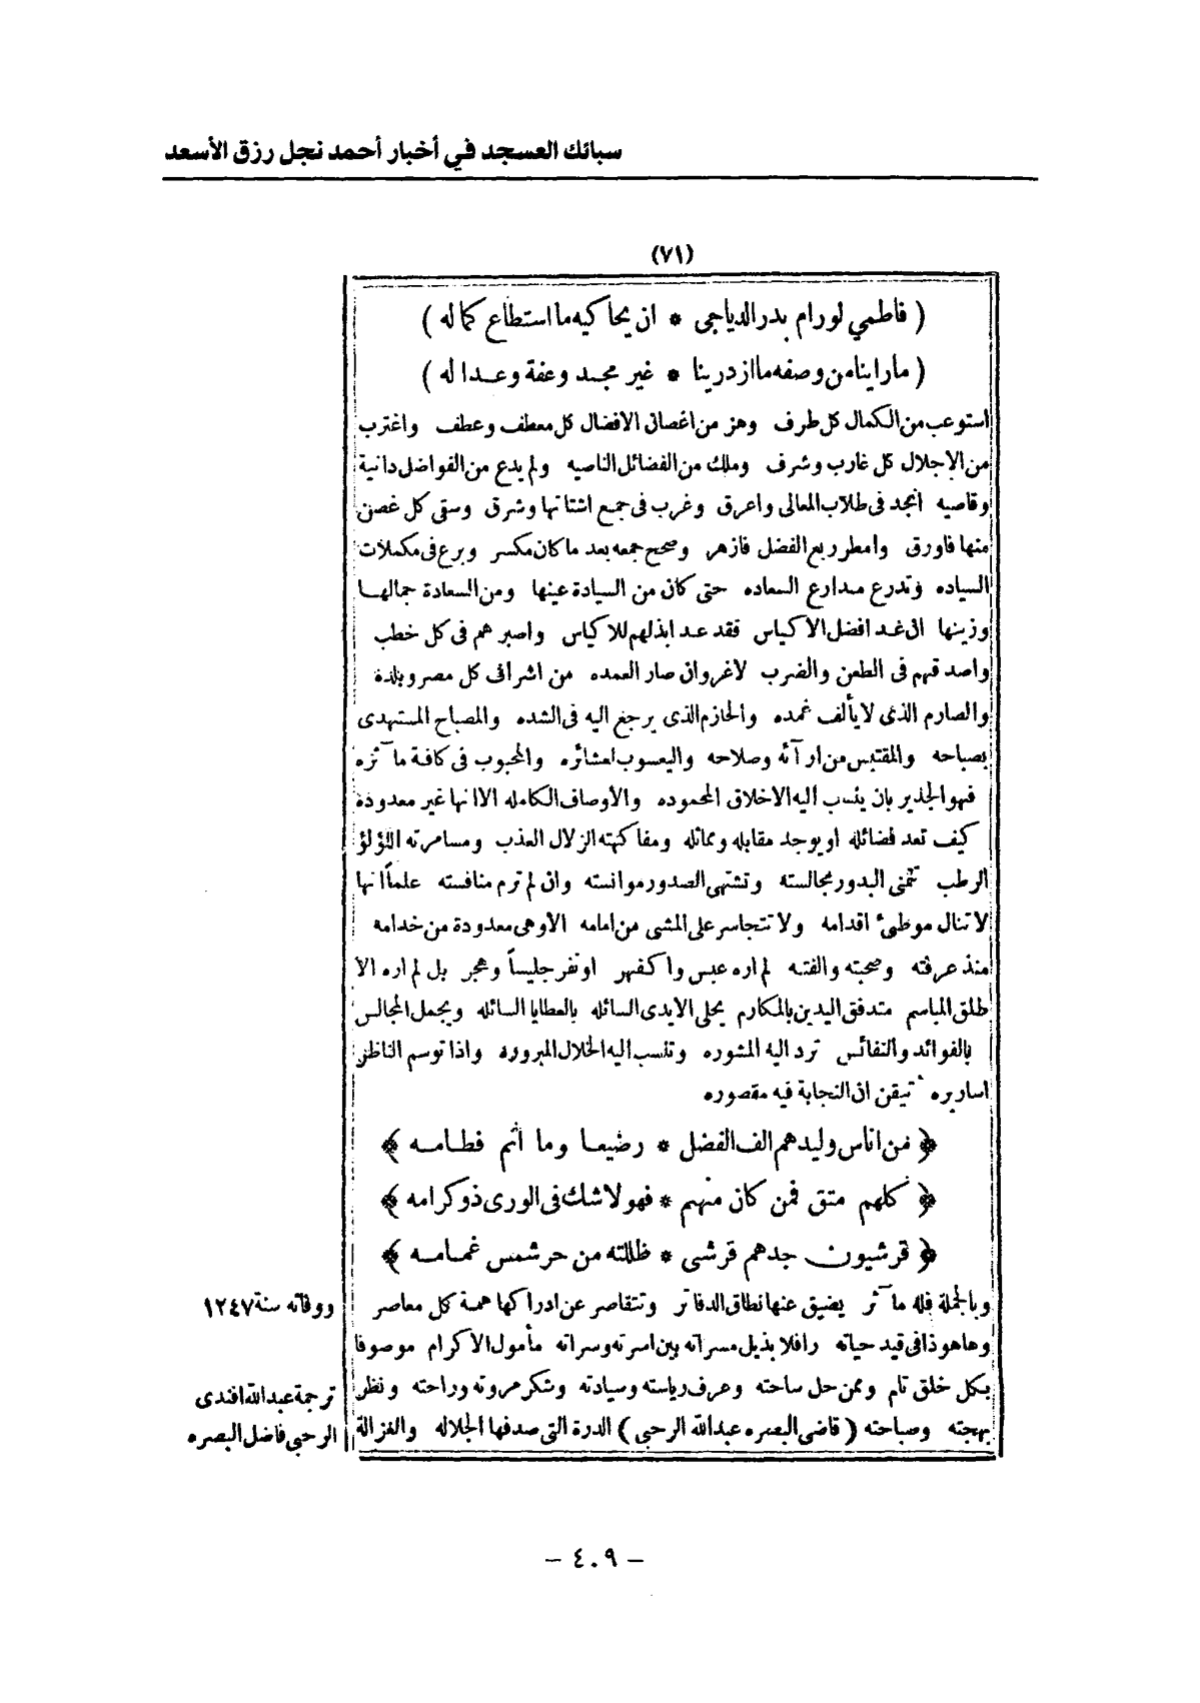 سبائك العسجد في أخبار أحمد نجل رزق الأسعد
(٧١)
( فاطمي لو رام بدر الدياجى * ان يحاكيه ما استطاع كماله )
( ما راينا من وصفه ما ازدرينا * غير مجد وعفة وعداله )
استوعب من الكمال كل طرف وهز من اغصان الافضال كل معطف وعطف واغترب
من الاجلال كل غارب وشرف وملك من الفضائل الناصيه ولم يدع من الفواضل دانية
وقاصيه انجد فى طلاب المعالى واعرق وغرب فى جمع اشتاتها وشرق وسقى كل غصن
منها فاورق وامطر ربع الفضل فازهر وصحح جمعه بعد ما كان مكسر وبرع فى مكملات
السياده وتدرع مدارع السعاده حتى كان من السيادة عينها ومن السعادة جمالها
وزينها ان غد افضل الاكياس فقد عد ابذلهم للاكياس واصبرهم فى كل خطب
واصدقهم فى الطعن والضرب لاغروان صار العمده من اشراف كل مصر وبلدة
والصارم الذى لا يألف غمده والحازم الذى يرجع اليه فى الشده والمصباح المستهدى
بصباحه والمقتبس من ارآئه وصلاحه واليعسوب لعشائره والمحبوب فى كافة مآثره
فهو الجدير بان ينسب اليه الاخلاق المحموده والاوصاف الكامله الا انها غير معدودة
كيف تعد فضائله او يوجد مقابله ومماثله ومفاكهته الزلال العذب ومسامرته اللؤلؤ
الرطب تتمنى البدور مجالسته وتشتهى الصدور موانسته وان لم ترم منافسته علماً انها
لا تنال موطئ اقدامه ولا تتجاسر على المشى من امامه الا وهى معدودة من خدامه
منذ عرفته وصحبته والفته لم اره عبس واكفهر او نفر جليساً وهجر بل لم اره الا
طلق المباسم متدفق اليدين بالمكارم يحلى الايدى السائله بالعطايا السائله ويجمل المجالس
بالفوائد والنفائس ترد اليه المشوره وتنسب اليه الخلال المبروره واذا توسم الناظر
اساريره تيقن ان النجابة فيه مقصوره
﴿ من اناس وليدهم الف الفضل * رضيعا وما اتم فطامه ﴾
﴿ كلهم متق فمن كان منهم * فهو لاشك فى الورى ذو كرامه ﴾
﴿ قرشيون جدهم قرشى * ظللته من حر شمس غمامه ﴾
وبالجملة فله مآثر يضيق عنها نطاق الدفاتر وتتقاصر عن ادراكها همة كل معاصر
وها هو ذا فى قيد حياته رافلا بذيل مسراته بين اسرته وسراته مأمول الاكرام موصوفا
بكل خلق تام وممن حل ساحته وعرف رياسته وسيادته وشكر مروته وراحته ونظر
بهجته وصباحته ( قاضى البصره عبدالله الرحبى ) الدرة التى صدفها الجلاله والغزالة
ووفاته سنة ١٢٤٧
ترجمة عبدالله افندى
الرحبى فاضل البصره
– ٤٠٩ –